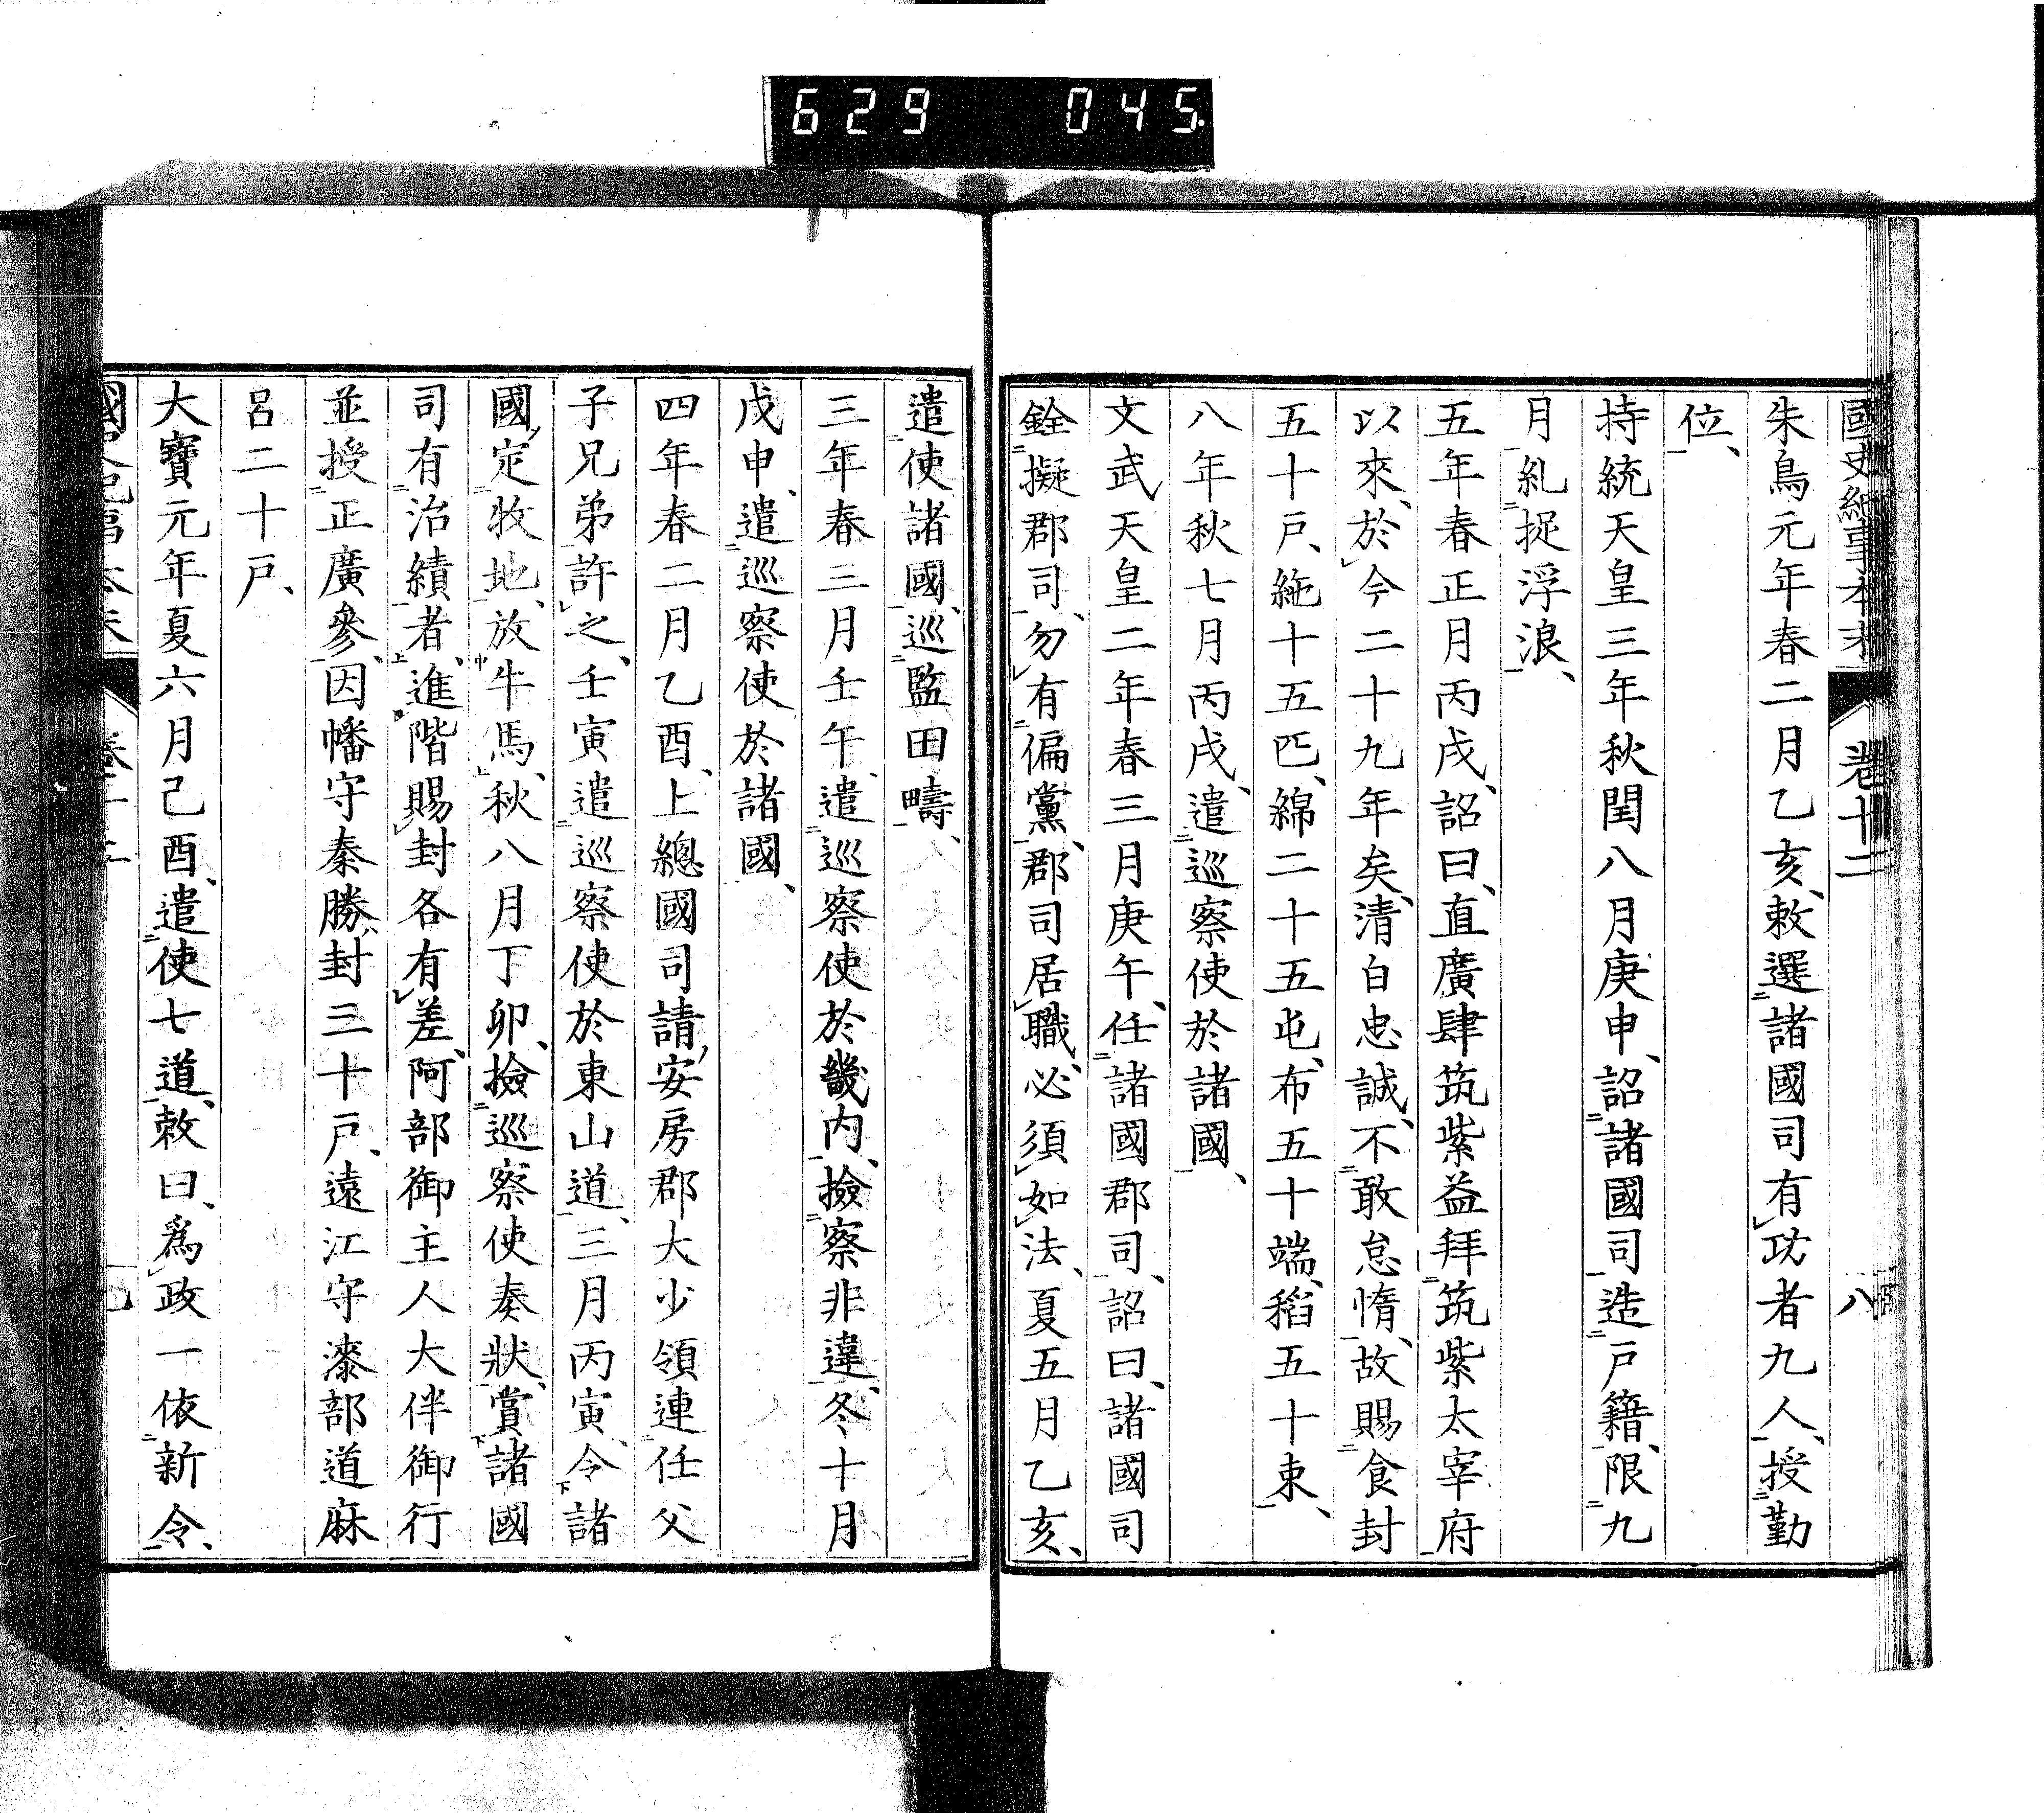 629 045
國史紀事本末 卷十二 八
朱鳥元年春二月乙亥、敕選二諸國司有レ功者九人一、授二勤
位一、
持統天皇三年秋閏八月庚申、詔二諸國司一造二戸籍一、限二九
月一糺二捉浮浪一、
五年春正月丙戌、詔曰、直廣肆筑紫益拜二筑紫太宰府一
以來、於レ今二十九年矣、清白忠誠、不二敢怠惰一、故賜二食封
五十戸、絁十五匹、綿二十五屯、布五十端、稻五十束一、
八年秋七月丙戌、遣二巡察使於諸國一、
文武天皇二年春三月庚午、任二諸國郡司一、詔曰、諸國司
銓二擬郡司一、勿レ有二偏黨一、郡司居レ職、必須レ如レ法、夏五月乙亥、
遣二使諸國一、巡二監田疇一、
三年春三月壬午、遣二巡察使於畿内一、撿二察非違一、冬十月
戊申、遣二巡察使於諸國一、
四年春二月乙酉、上總國司請、安房郡大少領連二任父
子兄弟一許レ之、壬寅遣二巡察使於東山道一、三月丙寅、令下諸
國、定二牧地一、放中牛馬上、秋八月丁卯、撿二巡察使奏狀一、賞下諸國
司有二治績一者上、進レ階賜レ封各有レ差、阿部御主人大伴御行
並授二正廣參一、因幡守秦勝、封三十戸、遠江守漆部道麻
呂二十戸、
大寶元年夏六月己酉、遣二使七道一、敕曰、爲レ政一依二新令一、